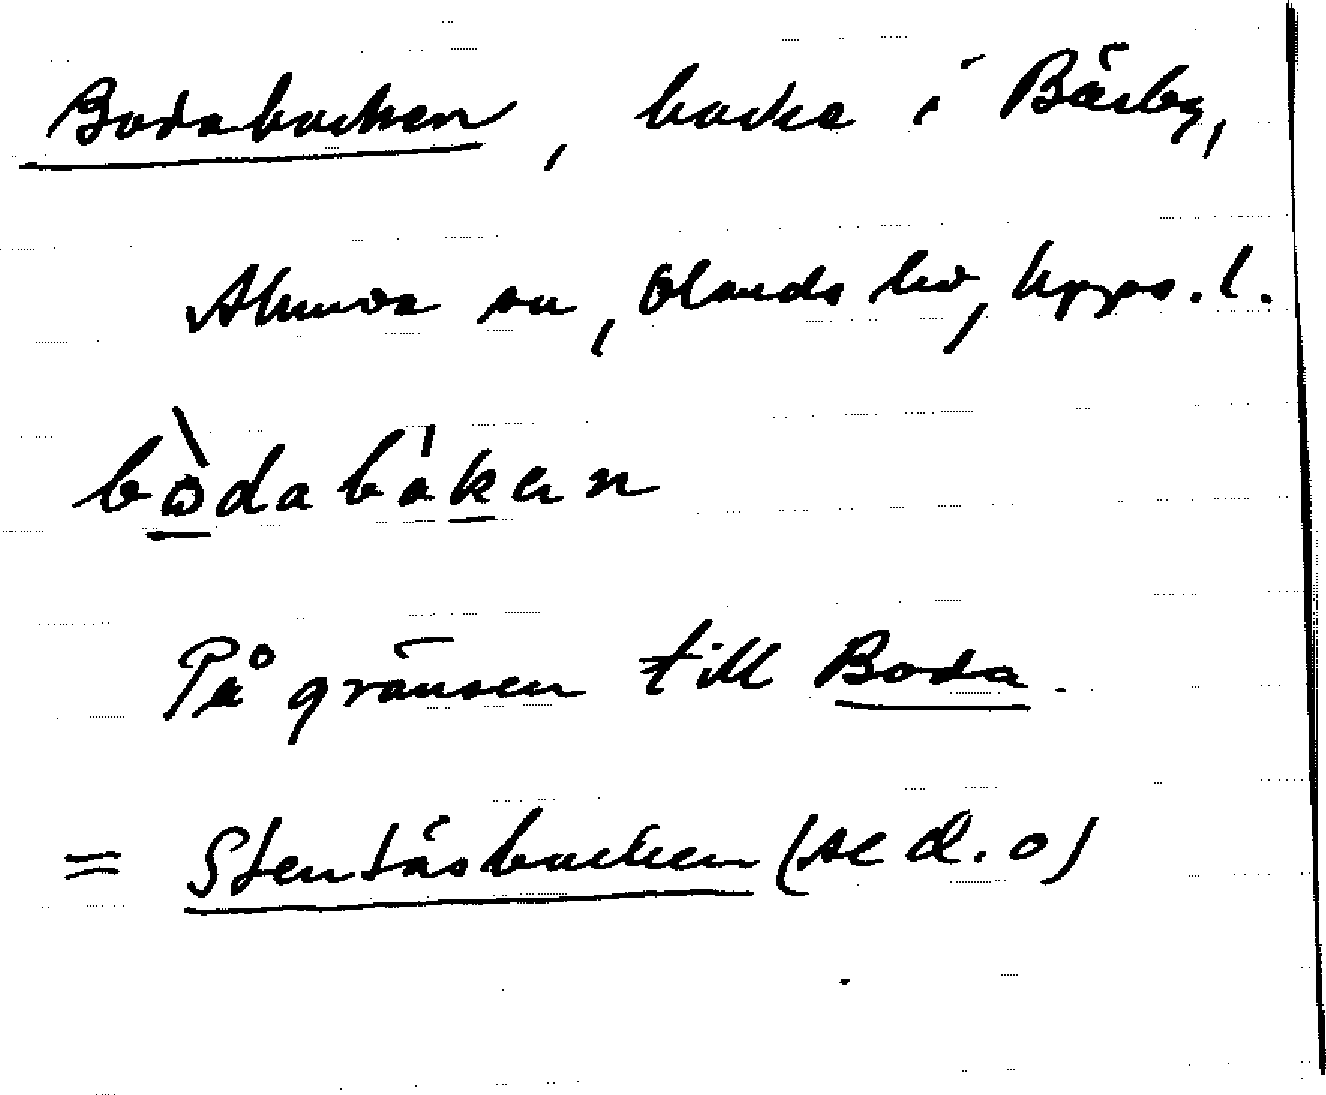 Bodabacken, backe i Bärby,
Almunge sn, Olands hd, Upps. l.
bòdabákan
På gränsen till Boda.
= Stentåsbacken (se d. o)